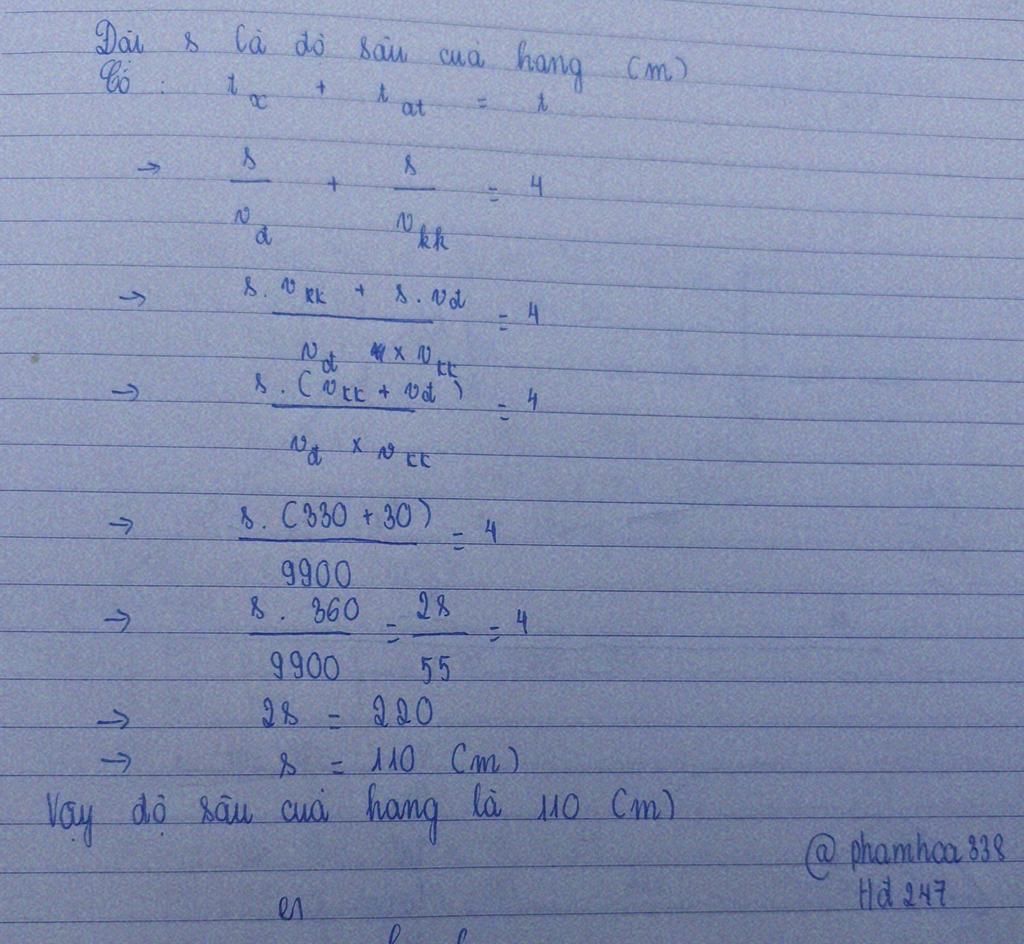 Dài s là độ sâu cuả hang (m)
Có : t_x + t_at = t
→ s/v_đ + s/v_kk = 4
→ (s. v_kk + s. v_đ)/(v_đ × v_kk) = 4
→ s. (v_kk + v_đ)/(v_đ × v_kk) = 4
→ s. (330 + 30)/9900 = 4
→ s. 360/9900 = 2s/55 = 4
→ 2s = 220
→ s = 110 (m)
Vậy độ sâu cuả hang là 110 (m)
@ phamhoa338
Hd247